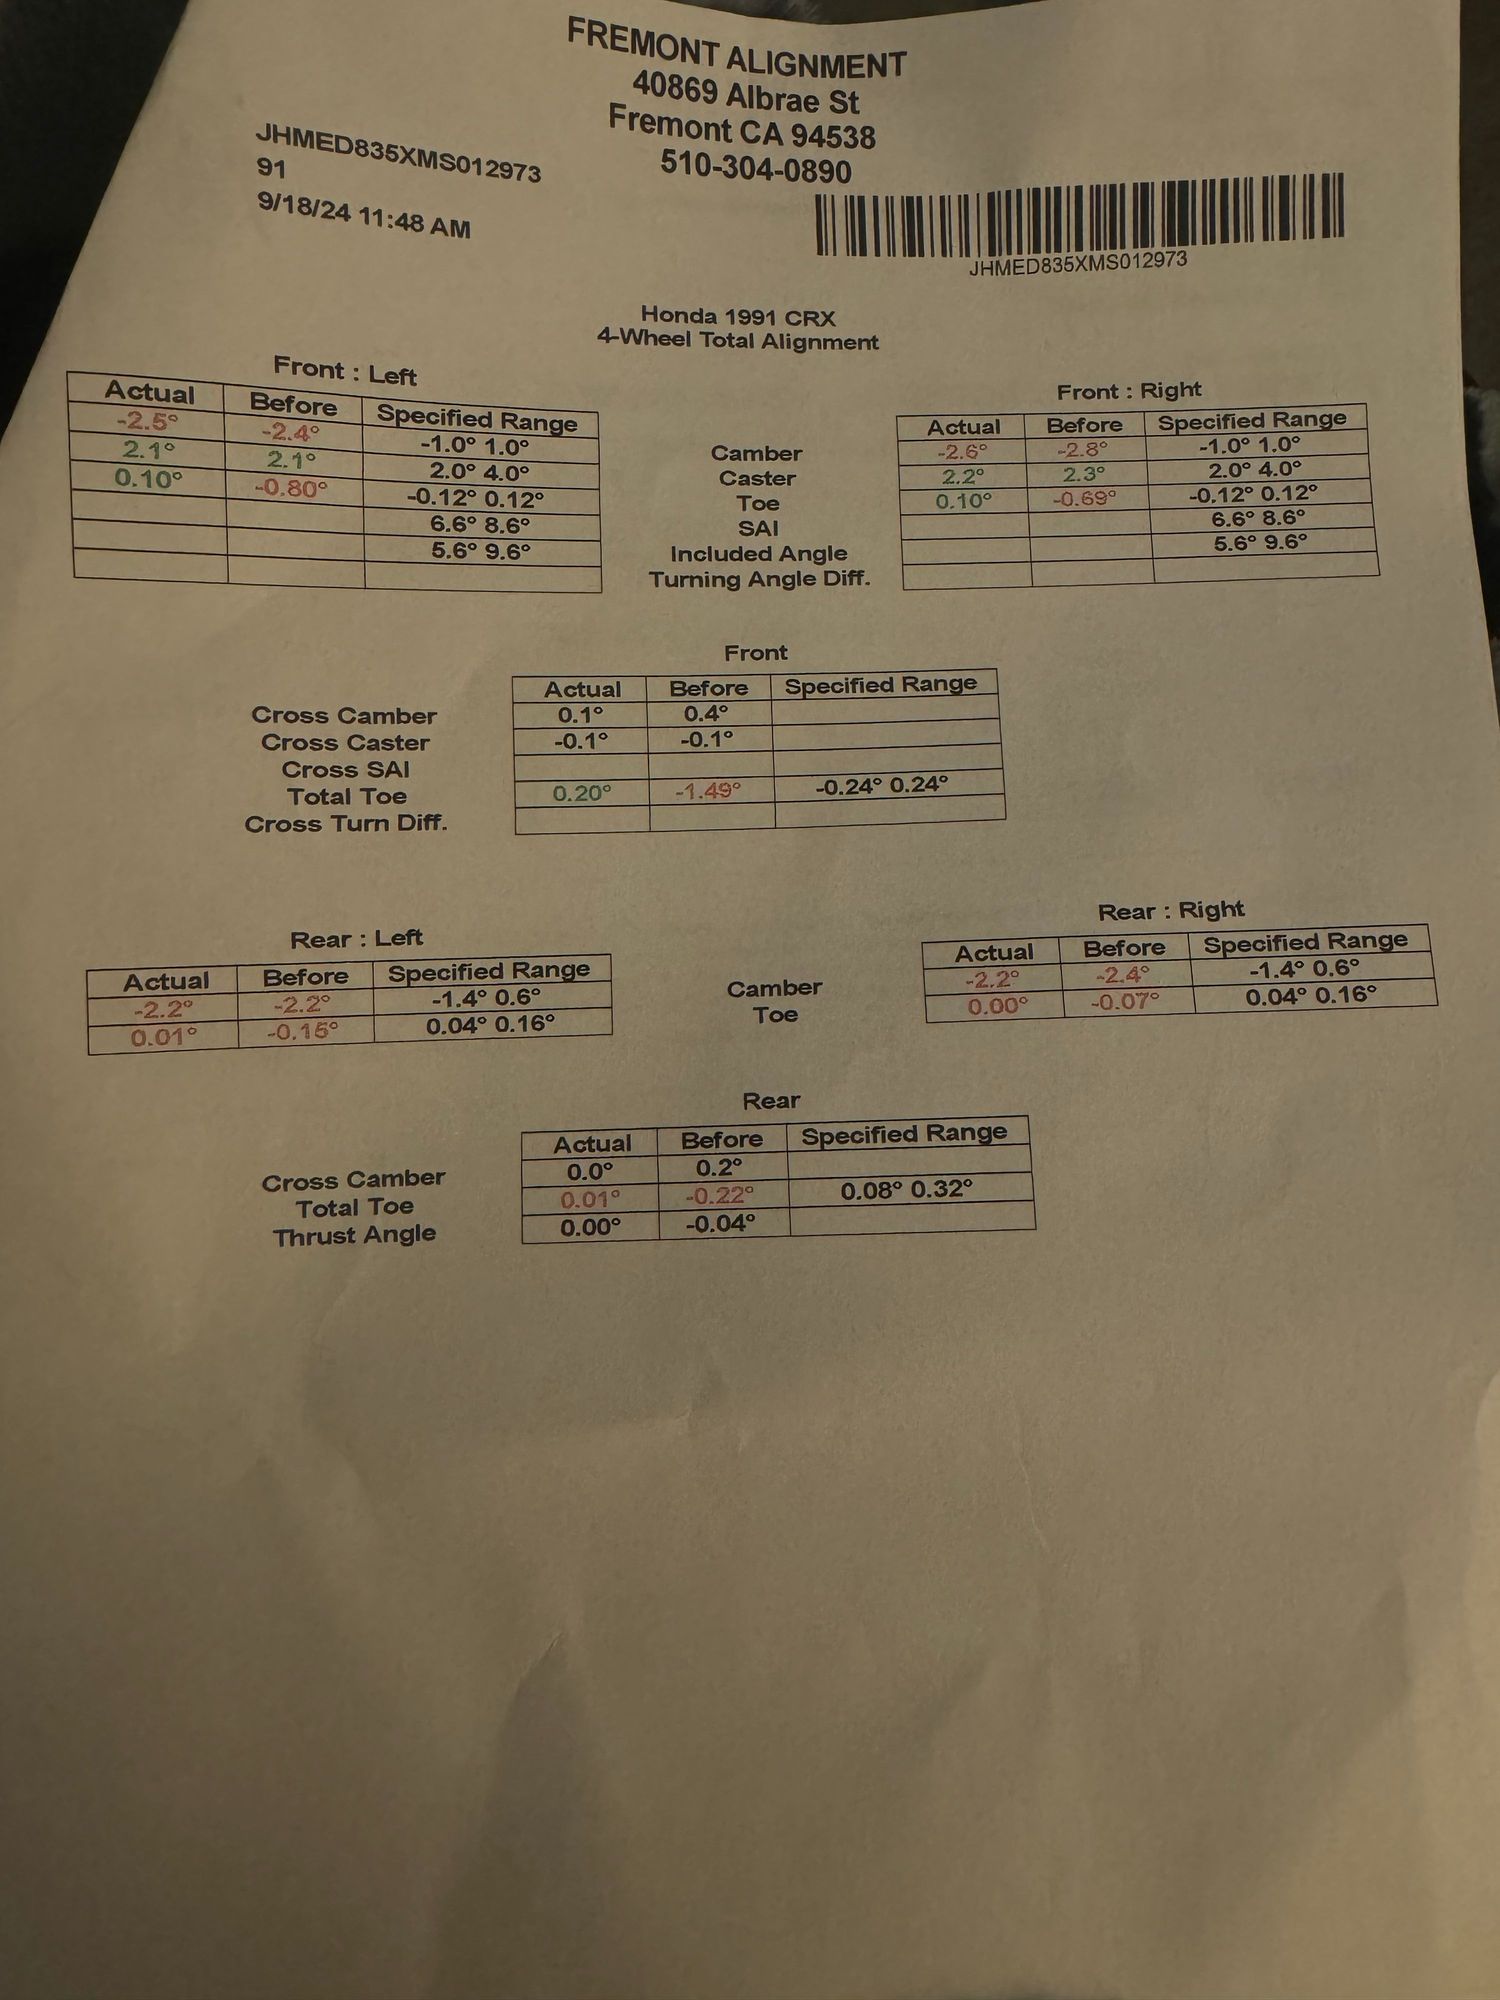 FREMONT ALIGNMENT
40869 Albrae St
Fremont CA 94538
510-304-0890
JHMED835XMS012973
91
9/18/24 11:48 AM
JHMED835XMS012973
Honda 1991 CRX
4-Wheel Total Alignment
Front : Left
Actual Before Specified Range
-2.5° -2.4° -1.0° 1.0°
2.1° 2.1° 2.0° 4.0°
0.10° -0.80° -0.12° 0.12°
6.6° 8.6°
5.6° 9.6°
Camber
Caster
Toe
SAI
Included Angle
Turning Angle Diff.
Front : Right
Actual Before Specified Range
-2.6° -2.8° -1.0° 1.0°
2.2° 2.3° 2.0° 4.0°
0.10° -0.69° -0.12° 0.12°
6.6° 8.6°
5.6° 9.6°
Front
Actual Before Specified Range
Cross Camber 0.1° 0.4°
Cross Caster -0.1° -0.1°
Cross SAI
Total Toe 0.20° -1.49° -0.24° 0.24°
Cross Turn Diff.
Rear : Left
Actual Before Specified Range
-2.2° -2.2° -1.4° 0.6°
0.01° -0.15° 0.04° 0.16°
Camber
Toe
Rear : Right
Actual Before Specified Range
-2.2° -2.4° -1.4° 0.6°
0.00° -0.07° 0.04° 0.16°
Rear
Actual Before Specified Range
Cross Camber 0.0° 0.2°
Total Toe 0.01° -0.22° 0.08° 0.32°
Thrust Angle 0.00° -0.04°